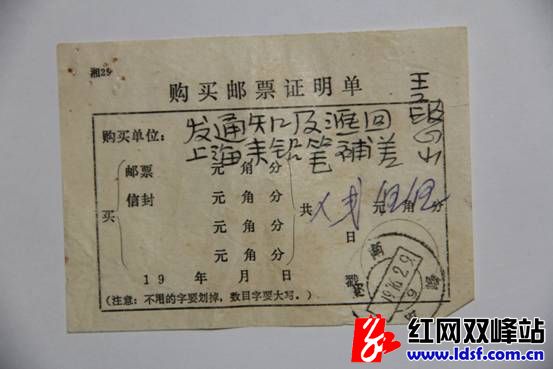 湘29
购买邮票证明单
购买单位：
发通知及滙回
上海表铅笔補差
邮票 元 角 分
信封 元 角 分
买 元 角 分
元 角 分
共 元 角 分
19 年 月 日
(注意：不用的字要划掉，数目字要大写。)
红网双峰站
www.ldsf.com.cn